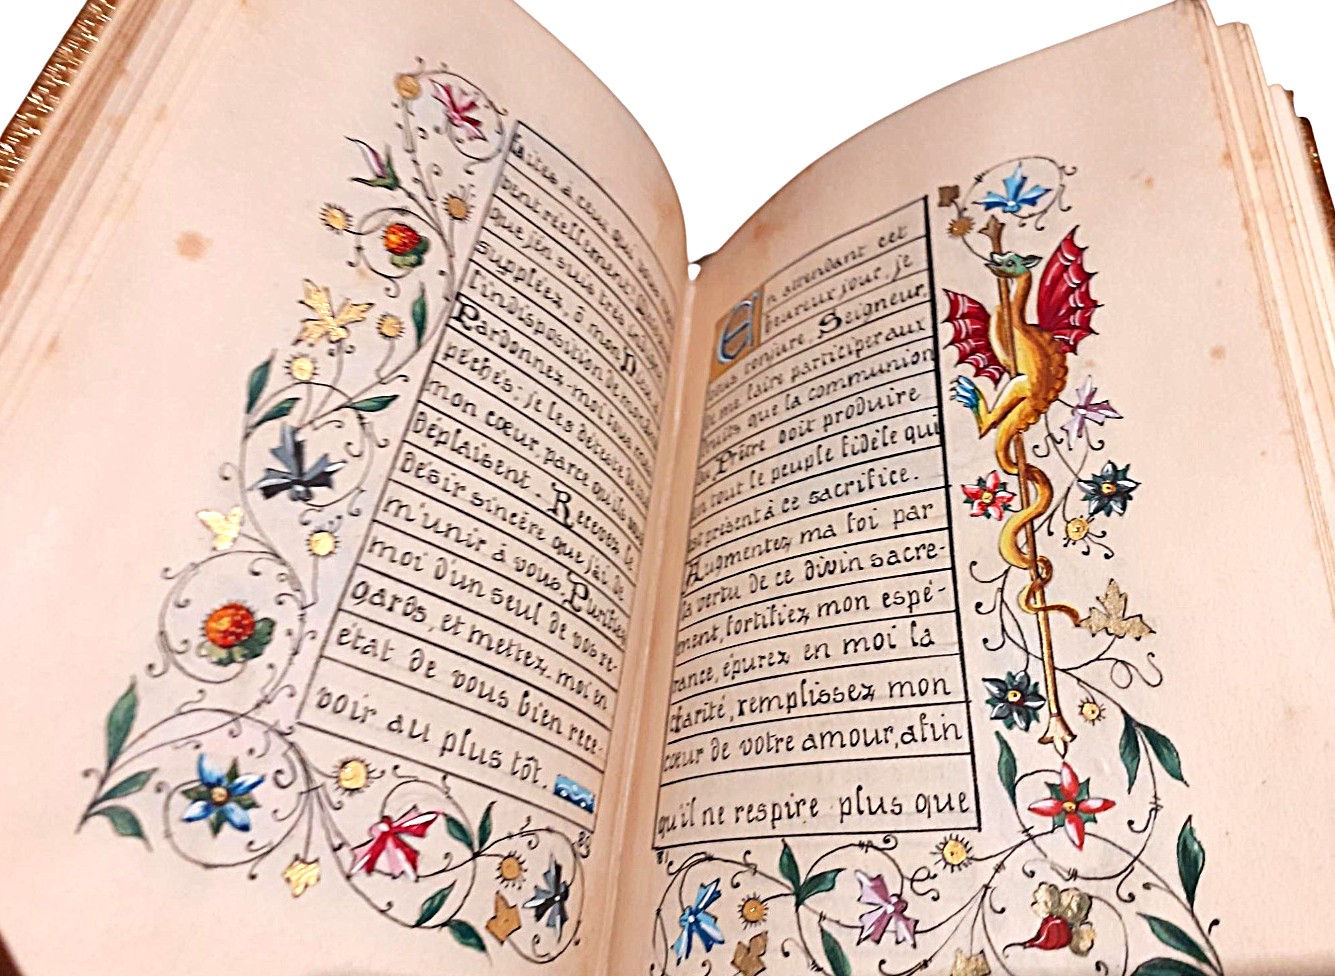 faites à ceux qui vous
que j'en suis très
suppléez, ô mon Dieu, à
l'indisposition de mon
Pardonnez-moi tous mes
péchés; je les déteste de tout
mon cœur, parce qu'ils vous
déplaisent. Recevez le
désir sincère que j'ai de
m'unir à vous. Purifiez
moi d'un seul de vos re-
gards, et mettez-moi en
état de vous bien rece-
voir au plus tôt.
En attendant cet
heureux jour, je
vous conjure, Seigneur,
de me faire participer aux
fruits que la communion
du Prêtre doit produire
en tout le peuple fidèle qui
est présent à ce sacrifice.
Augmentez ma foi par
la vertu de ce divin sacre-
ment, fortifiez mon espé-
rance, épurez en moi la
charité, remplissez mon
cœur de votre amour, afin
qu'il ne respire plus que